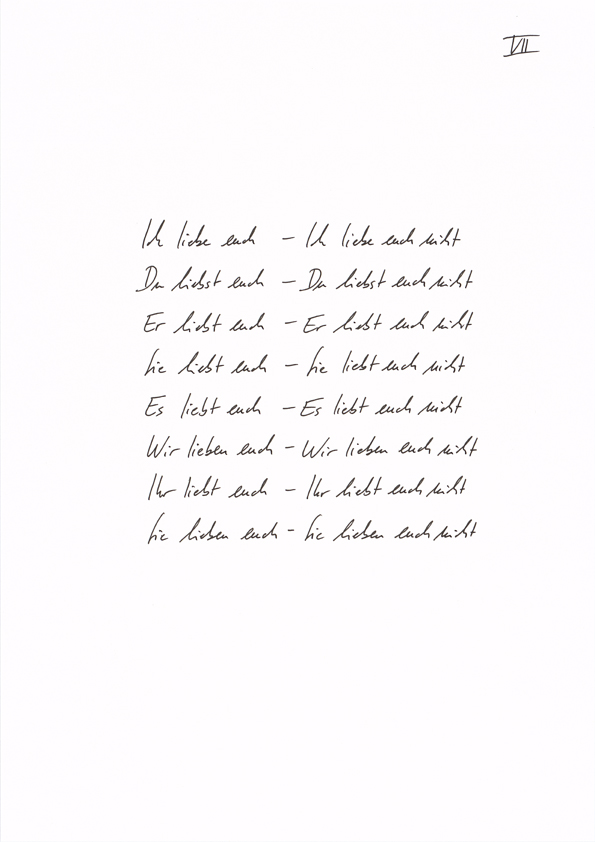 VII
Ich liebe euch – Ich liebe euch nicht
Du liebst euch – Du liebst euch nicht
Er liebt euch – Er liebt euch nicht
Sie liebt euch – Sie liebt euch nicht
Es liebt euch – Es liebt euch nicht
Wir lieben euch – Wir lieben euch nicht
Ihr liebt euch – Ihr liebt euch nicht
Sie lieben euch – Sie lieben euch nicht